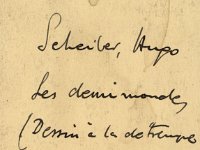 Scheiber, Hugo
Les demi mondes
(Dessin à la detrempe